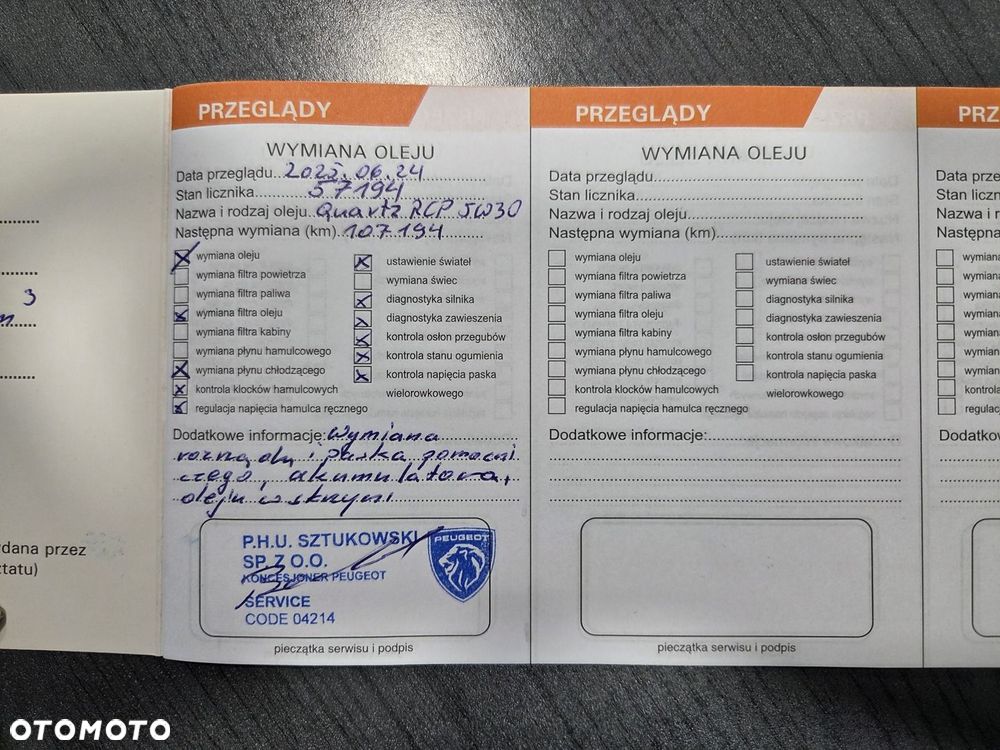 PRZEGLĄDY
WYMIANA OLEJU
Data przeglądu..2025.06.24
Stan licznika..........57194
Nazwa i rodzaj oleju..Quartz RCP 5W30
Następna wymiana (km).107194
wymiana oleju
wymiana filtra powietrza
wymiana filtra paliwa
wymiana filtra oleju
wymiana filtra kabiny
wymiana płynu hamulcowego
wymiana płynu chłodzącego
kontrola klocków hamulcowych
regulacja napięcia hamulca ręcznego
ustawienie świateł
wymiana świec
diagnostyka silnika
diagnostyka zawieszenia
kontrola osłon przegubów
kontrola stanu ogumienia
kontrola napięcia paska
wielorowkowego
Dodatkowe informacje: Wymiana
rozrządu i paska pomocni
czego, akumulatora,
oleju w skrzyni
P.H.U. SZTUKOWSKI
SP. Z O.O.
KONCESJONER PEUGEOT
SERVICE
CODE 04214
PEUGEOT
pieczątka serwisu i podpis
PRZEGLĄDY
WYMIANA OLEJU
Data przeglądu
Stan licznika
Nazwa i rodzaj oleju
Następna wymiana (km)
wymiana oleju
wymiana filtra powietrza
wymiana filtra paliwa
wymiana filtra oleju
wymiana filtra kabiny
wymiana płynu hamulcowego
wymiana płynu chłodzącego
kontrola klocków hamulcowych
regulacja napięcia hamulca ręcznego
ustawienie świateł
wymiana świec
diagnostyka silnika
diagnostyka zawieszenia
kontrola osłon przegubów
kontrola stanu ogumienia
kontrola napięcia paska
wielorowkowego
Dodatkowe informacje:
pieczątka serwisu i podpis
3
dana przez
ztatu)
PRZ
Data prze
Stan liczn
Nazwa i r
Następna
Dodatko
OTOMOTO